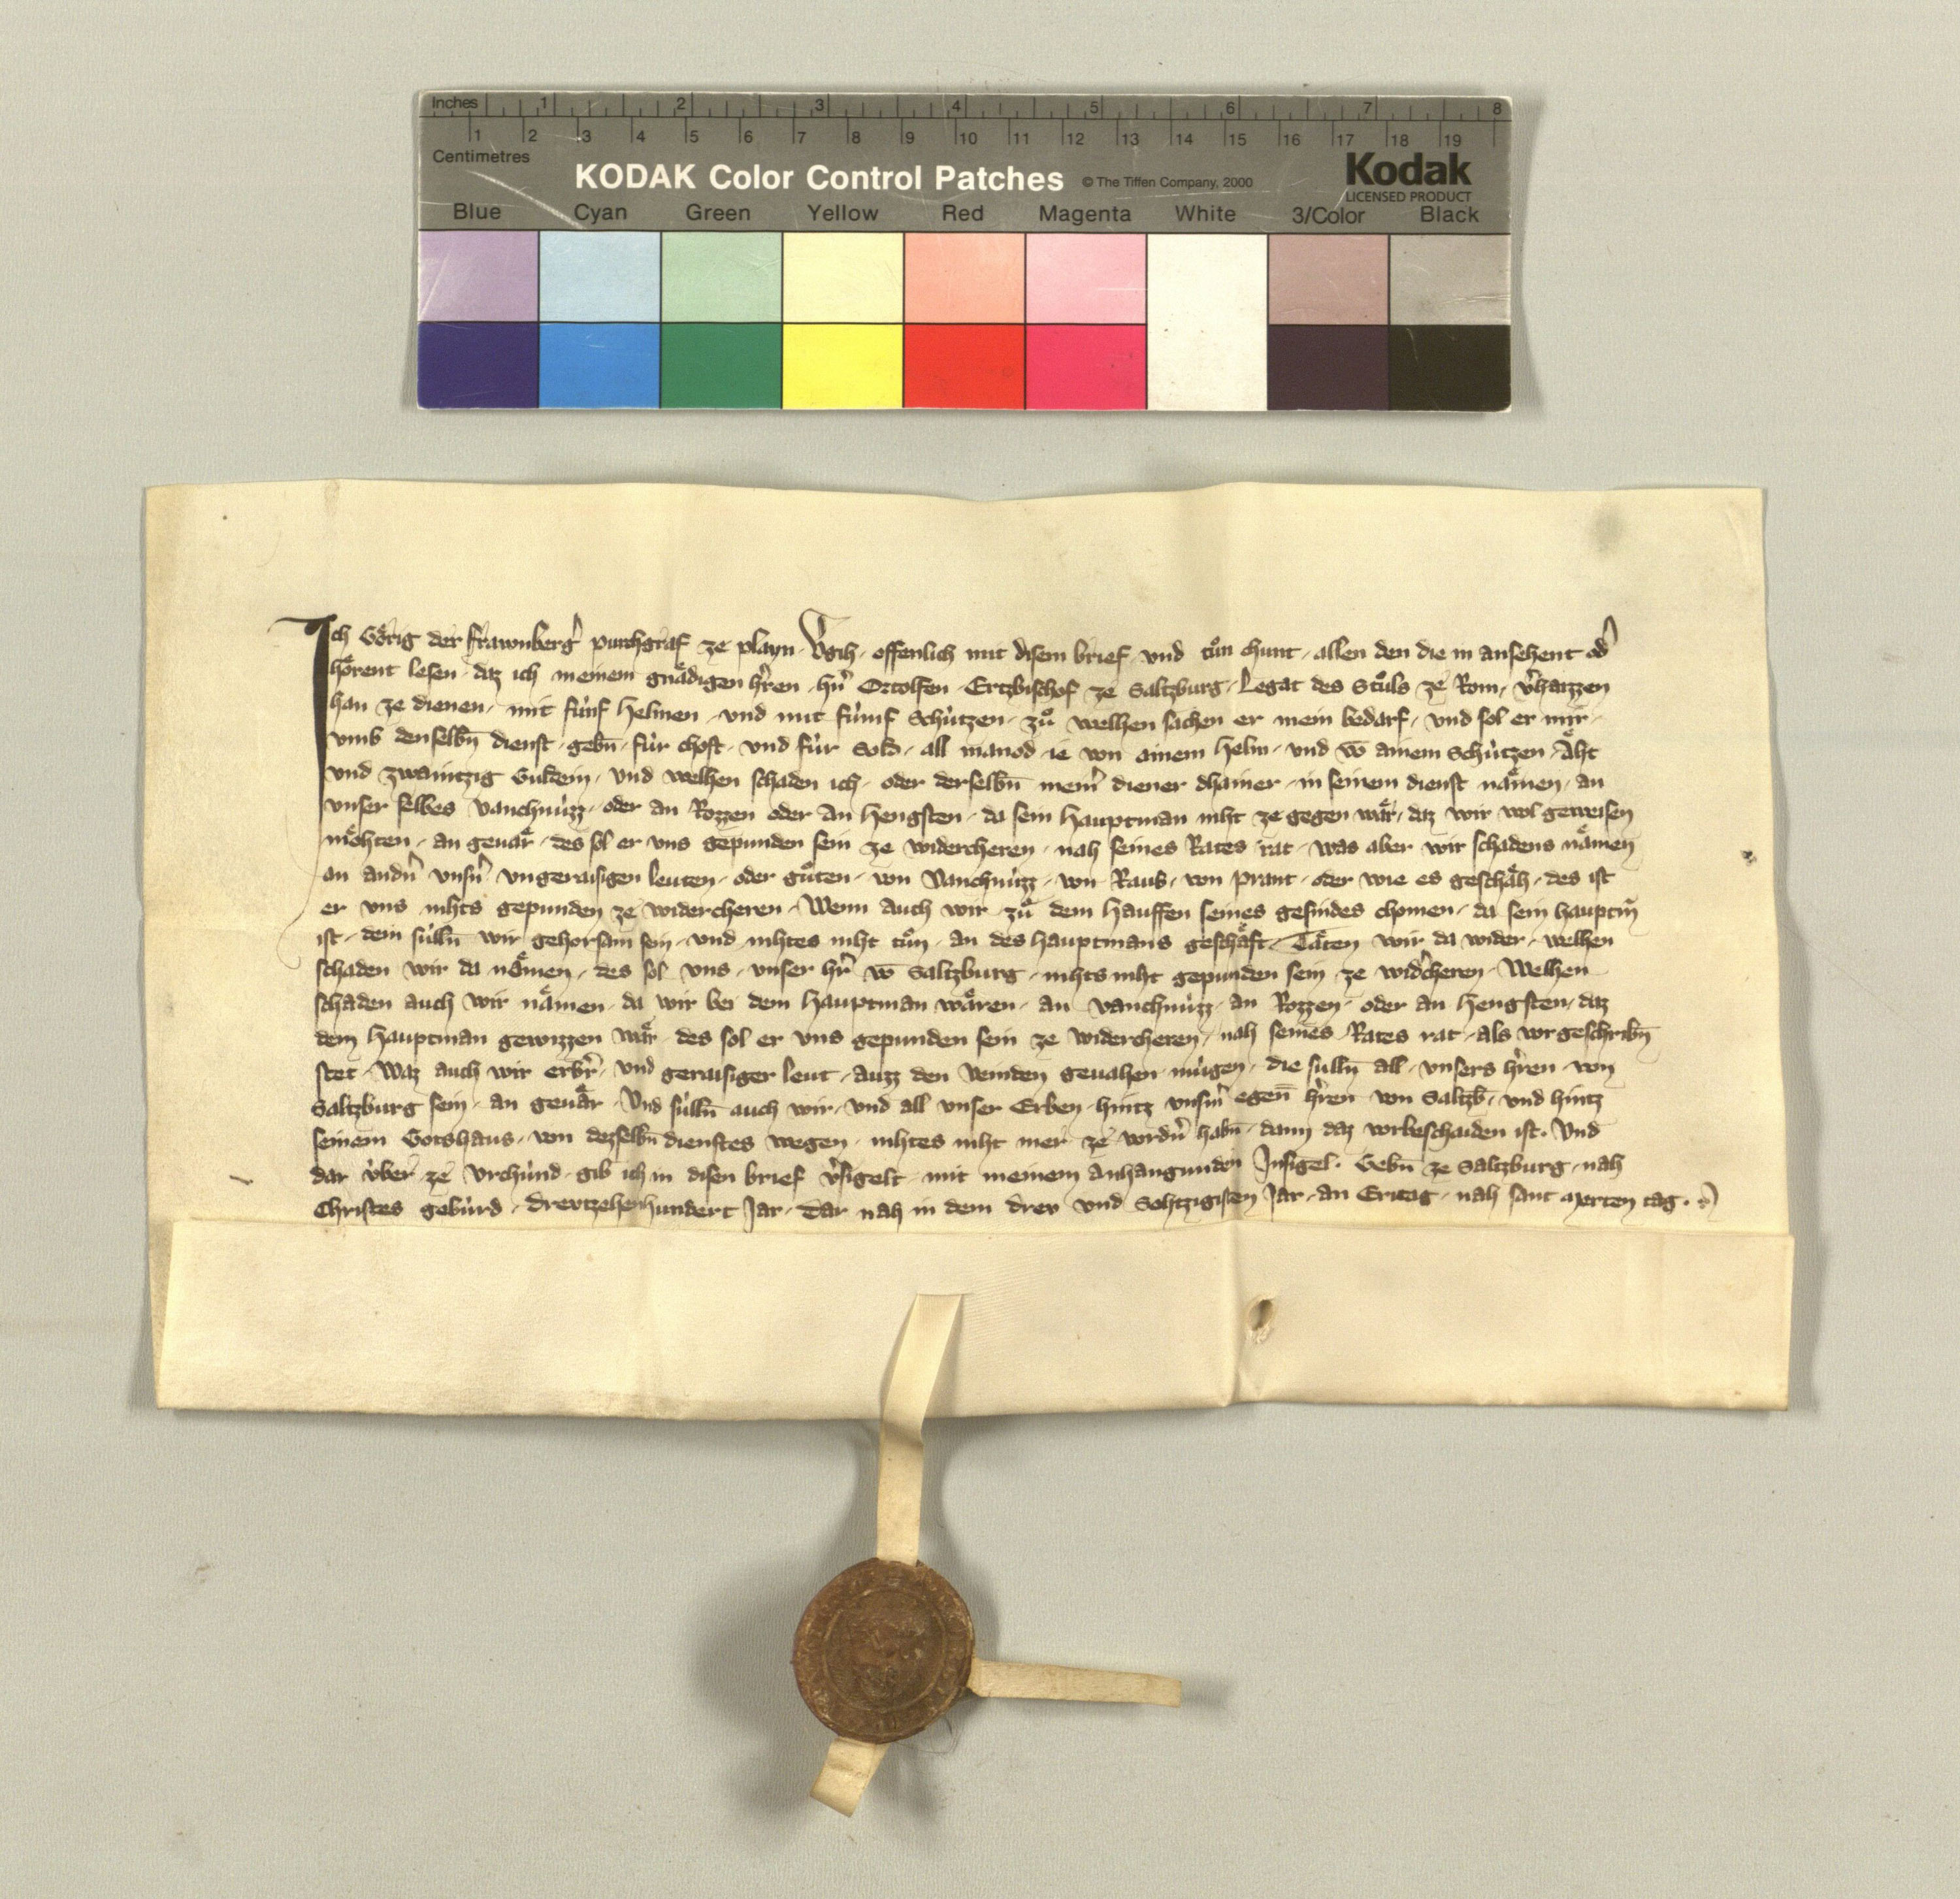 Inches 1 2 3 4 5 6 7 8
1 2 3 4 5 6 7 8 9 10 11 12 13 14 15 16 17 18 19
Centimetres
KODAK Color Control Patches © The Tiffen Company, 2000 Kodak
LICENSED PRODUCT
Blue Cyan Green Yellow Red Magenta White 3/Color Black
Ich Görig der Frawnberg̉ purchgraf ze playn v̉gih offenlich mit disem brief und tuͦn chunt allen den die in ansehent od̉
hoͤrent lesen daz ich meinem gnaͤdigen h̉ren hn̉ Ortolfen Ertzbischof ze Saltzburg Legat des Stuͦls ze Rom v̉haizzen
han ze dienen mit fünf Helmen und mit fünif Schützen zuͦ welhen sachen er mein bedarf und sol er mir
vmb denselbn̄ dienst gebn̄ für chost und für Sold all manod ie von ainem Helm und vō ainem Schützen Aͤht
und zwaintzig Guldein und welhen schaden ich oder derselbn̄ mein̉ diener dhainer in seinem dienst naͤmen an
vnser selbes vanchnüzz oder an Rozzen oder an Hengsten da sein Hauptman niht ze gegen waͤr daz wir wol geweisen
moͤhten an geuaͤr des sol er vns gepunden sein ze widercheren nah seines Rates rat was aber wir schadens naͤmen
an andn̉ vnsn̉ vngeraisigen leuten oder guͦten von vanchnüzz von Raub von prant oder wie es geschaͤh des ist
er vns nihts gepunden ze widercheren Wenn auch wir zuͦ dem Hauffen seines gesindes chomen da sein hauptm̄
ist dem sülln̄ wir gehorsam sein und nihtes niht tuͦn an des hauptmans geschaͤft Taͤten wir da wider welhen
schaden wir da naͤmen des sol vns vnser hr̉ vō Saltzburg nihts niht gepunden sein ze wid̉cheren Welhen
schaden auch wir naͤmen da wir bei dem Hauptman waͤren an vanchnüzz an Rozzen oder an Hengsten daz
dem Hauptman gewizzen waͤr des sol er vns gepunden sein ze widercheren nah seines Rates rat als vorgeschribn̄
stet Waz auch wir erbr̉ und geraisiger leut auzz den veinden geuahen mügen die sülln̄ all vnsers h̉ren von
Saltzburg sein an geuaͤr Und sülln̄ auch wir und all vnser Erben hintz vnsm̉ egen̄ h̉ren von Saltzb̄ und hintz
seinem Gotshaus von dezselbn̄ dienstes wegen nihtes niht mer ze vordn̉ habn̄ dann daz vorbeschaiden ist. Und
dar über ze vrchünd gib ich in disen brief v̉sigelt mit meinem anhangunden Insigel. Gebn̄ ze Saltzburg nah
Christes gebürd drevtzehenhundert Jar dar nah in dem drev und Sehtzigisten Jar an Eritag nah sant Merten tag.